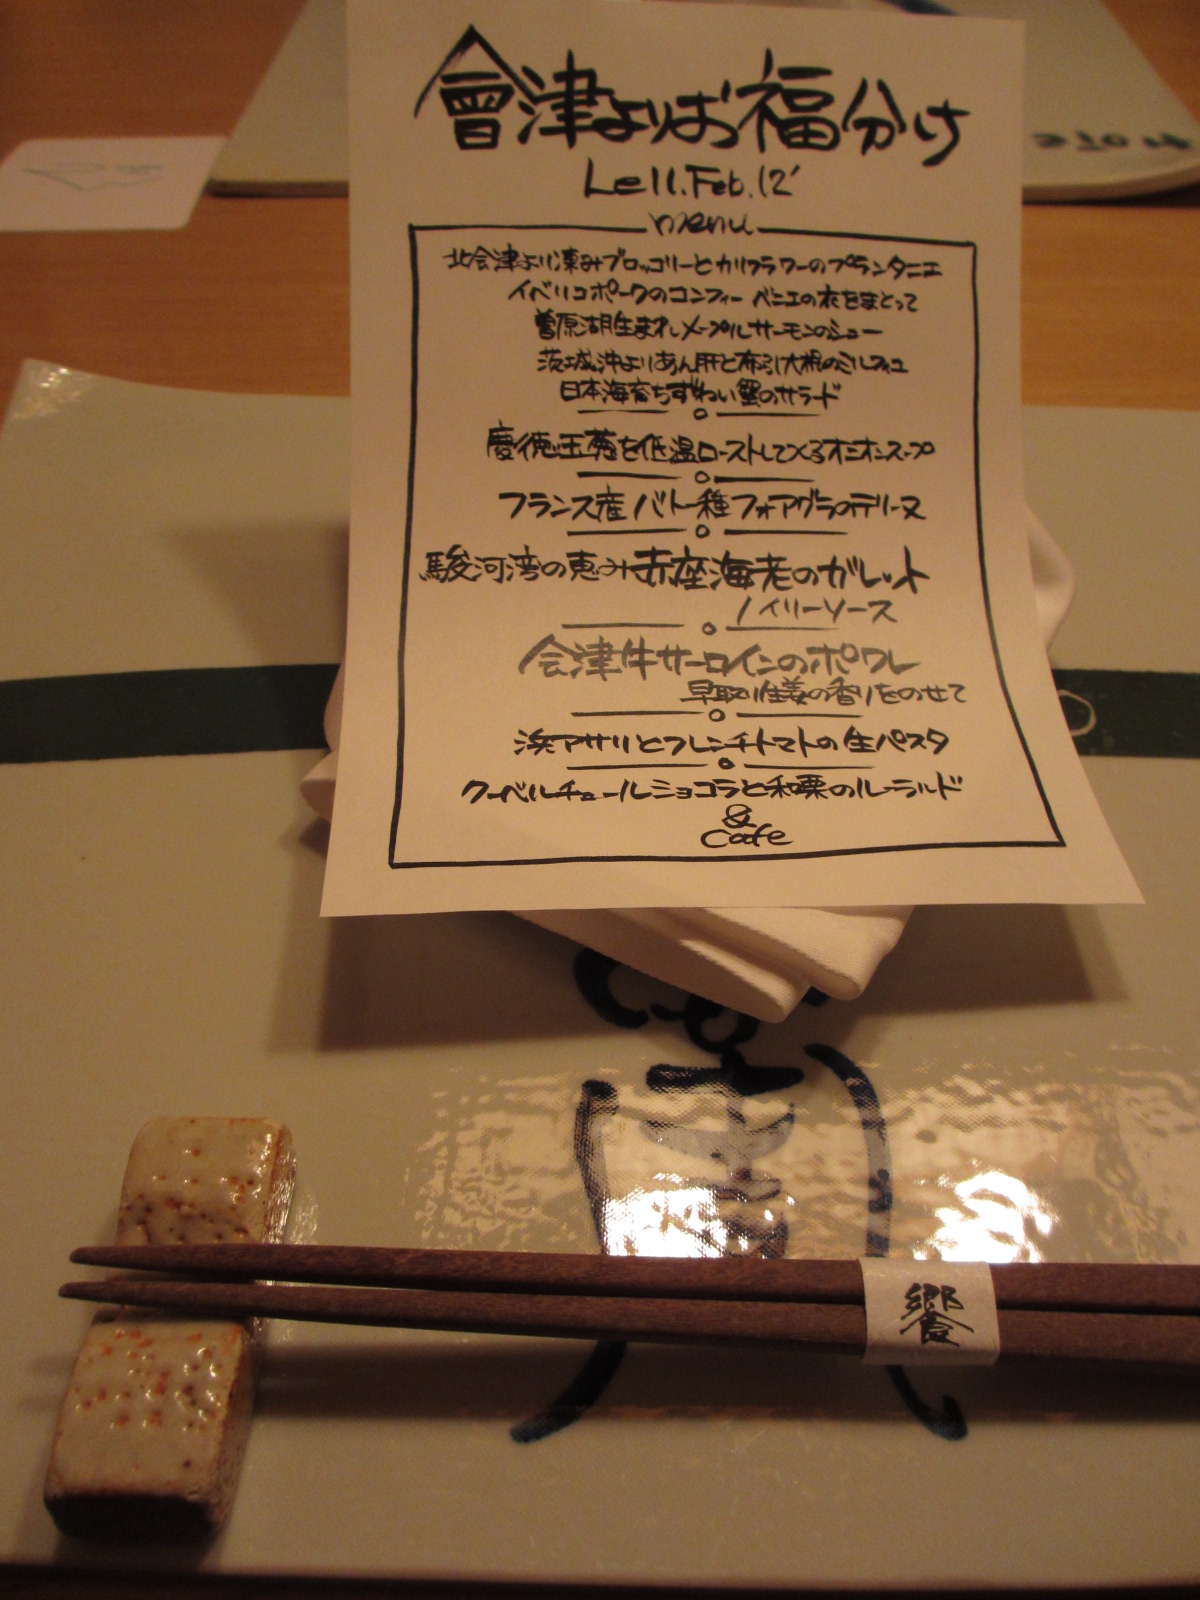 會津よりお福分け
Le 11. Feb. 12'
menu
北会津より凍みブロッコリーとカリフラワーのプランタニエ
イベリコポークのコンフィー ベニエの衣をまとって
曽原湖生まれメープルサーモンのショー
茨城沖よりあん肝と布引大根のミルフィユ
日本海育ちずわい蟹のサラード
慶徳玉葱を低温ローストしてx3オニオンスープ
フランス産バトー種フォアグラのテリーヌ
駿河湾の恵み赤座海老のガレット
ノイリーソース
会津牛サーロインのポワレ
早取り生姜の香りをのせて
浜アサリとフレンチトマトの生パスタ
クーベルチュールショコラと和栗のルーラルド
&
Cafe
饗